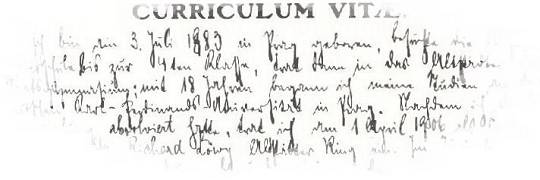 CURRICULUM VITÆ
Ich bin am 3. Juli 1883 in Prag geboren, besuchte die
bis zur 4ten Klasse, trat dann in das Altstädter
gymnasium; mit 18 Jahren begann ich meine Studien an
Karl-Ferdinands Universität in Prag. Nachdem ich
absolviert hatte, trat ich am 1 April 1906 als
Richard Löwy Altstädter Ring ein. Im